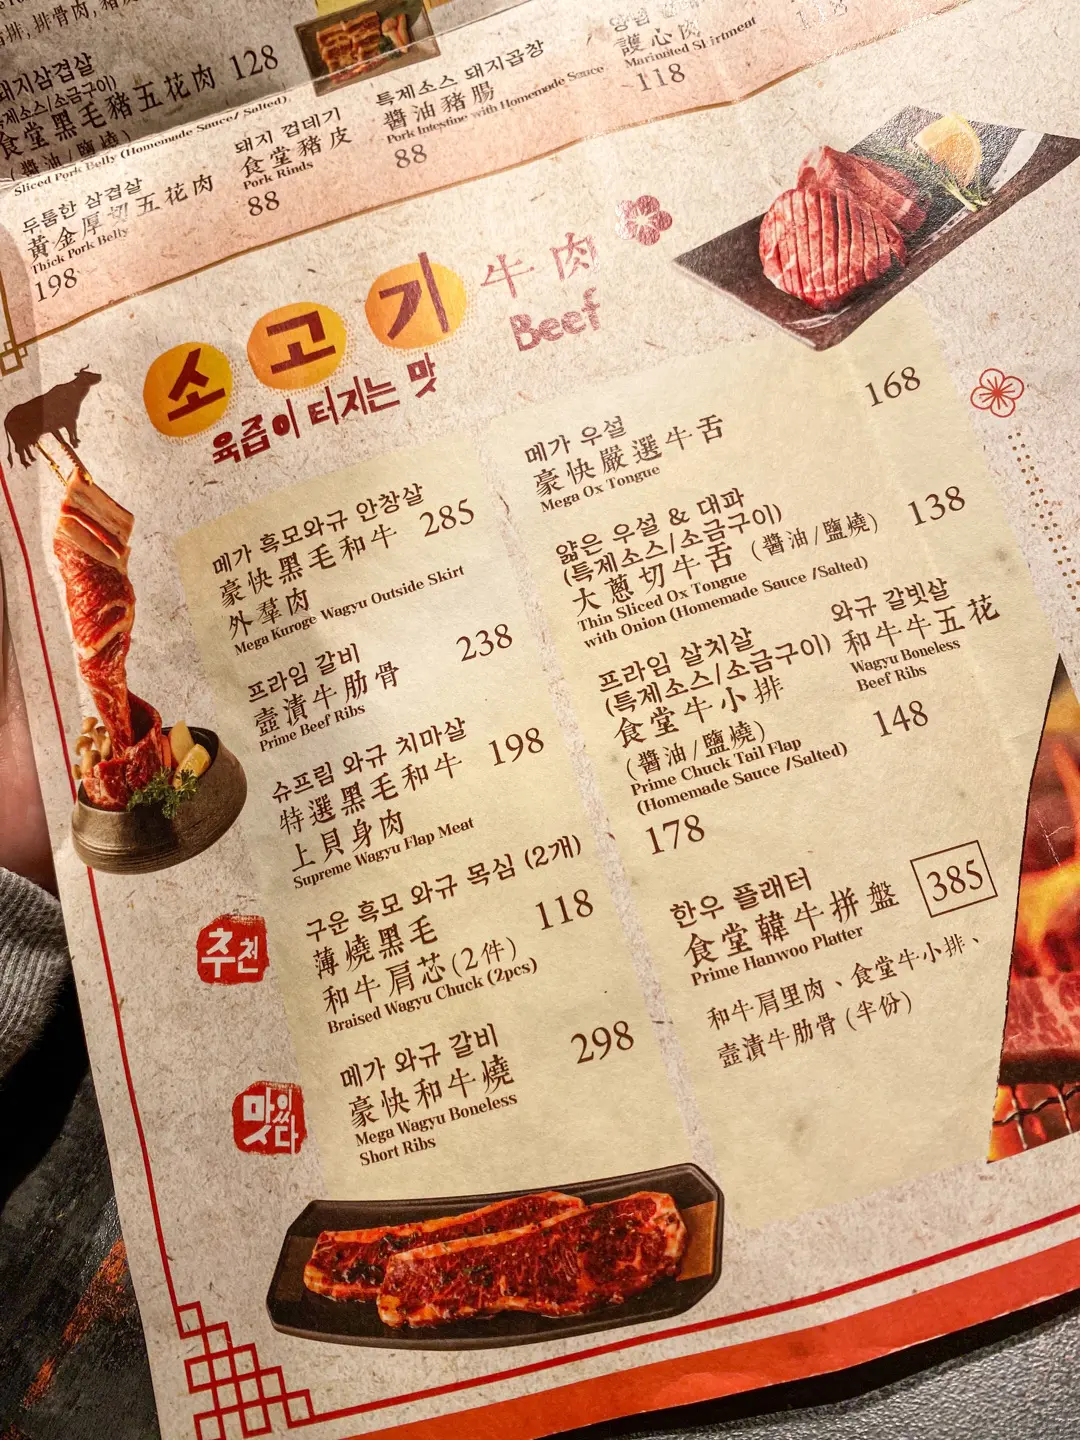 排, 排骨肉, 豬
돼지삼겹살
(특제소스/소금구이)
食堂黑毛豬五花肉 128
(醬油/鹽燒)
Sliced Pork Belly (Homemade Sauce/ Salted)
두툼한 삼겹살
黃金厚切五花肉
Thick Pork Belly
198
돼지 껍데기
食堂豬皮
Pork Rinds
88
특제소스 돼지곱창
醬油豬腸
Pork Intestine with Homemade Sauce
88
護心肉
Marinated Skirtment
118
소고기 牛肉
Beef
육즙이 터지는 맛
메가 흑모와규 안창살
豪快黑毛和牛 285
外羣肉
Mega Kuroge Wagyu Outside Skirt
프라임 갈비 238
壺漬牛肋骨
Prime Beef Ribs
슈프림 와규 치마살
特選黑毛和牛 198
上貝身肉
Supreme Wagyu Flap Meat
추천
구운 흑모 와규 목심 (2개)
薄燒黑毛 118
和牛肩芯 (2件)
Braised Wagyu Chuck (2pcs)
맛있다
메가 와규 갈비 298
豪快和牛燒
Mega Wagyu Boneless
Short Ribs
메가 우설 168
豪快嚴選牛舌
Mega Ox Tongue
얇은 우설 & 대파
(특제소스/소금구이) 138
大蔥切牛舌 (醬油/鹽燒)
Thin Sliced Ox Tongue
with Onion (Homemade Sauce /Salted)
프라임 살치살
(특제소스/소금구이)
食堂牛小排
(醬油/鹽燒)
Prime Chuck Tail Flap
(Homemade Sauce /Salted)
178
와규 갈빗살
和牛牛五花
Wagyu Boneless
Beef Ribs
148
한우 플래터 385
食堂韓牛拼盤
Prime Hanwoo Platter
和牛肩里肉、食堂牛小排、
壺漬牛肋骨 (半份)